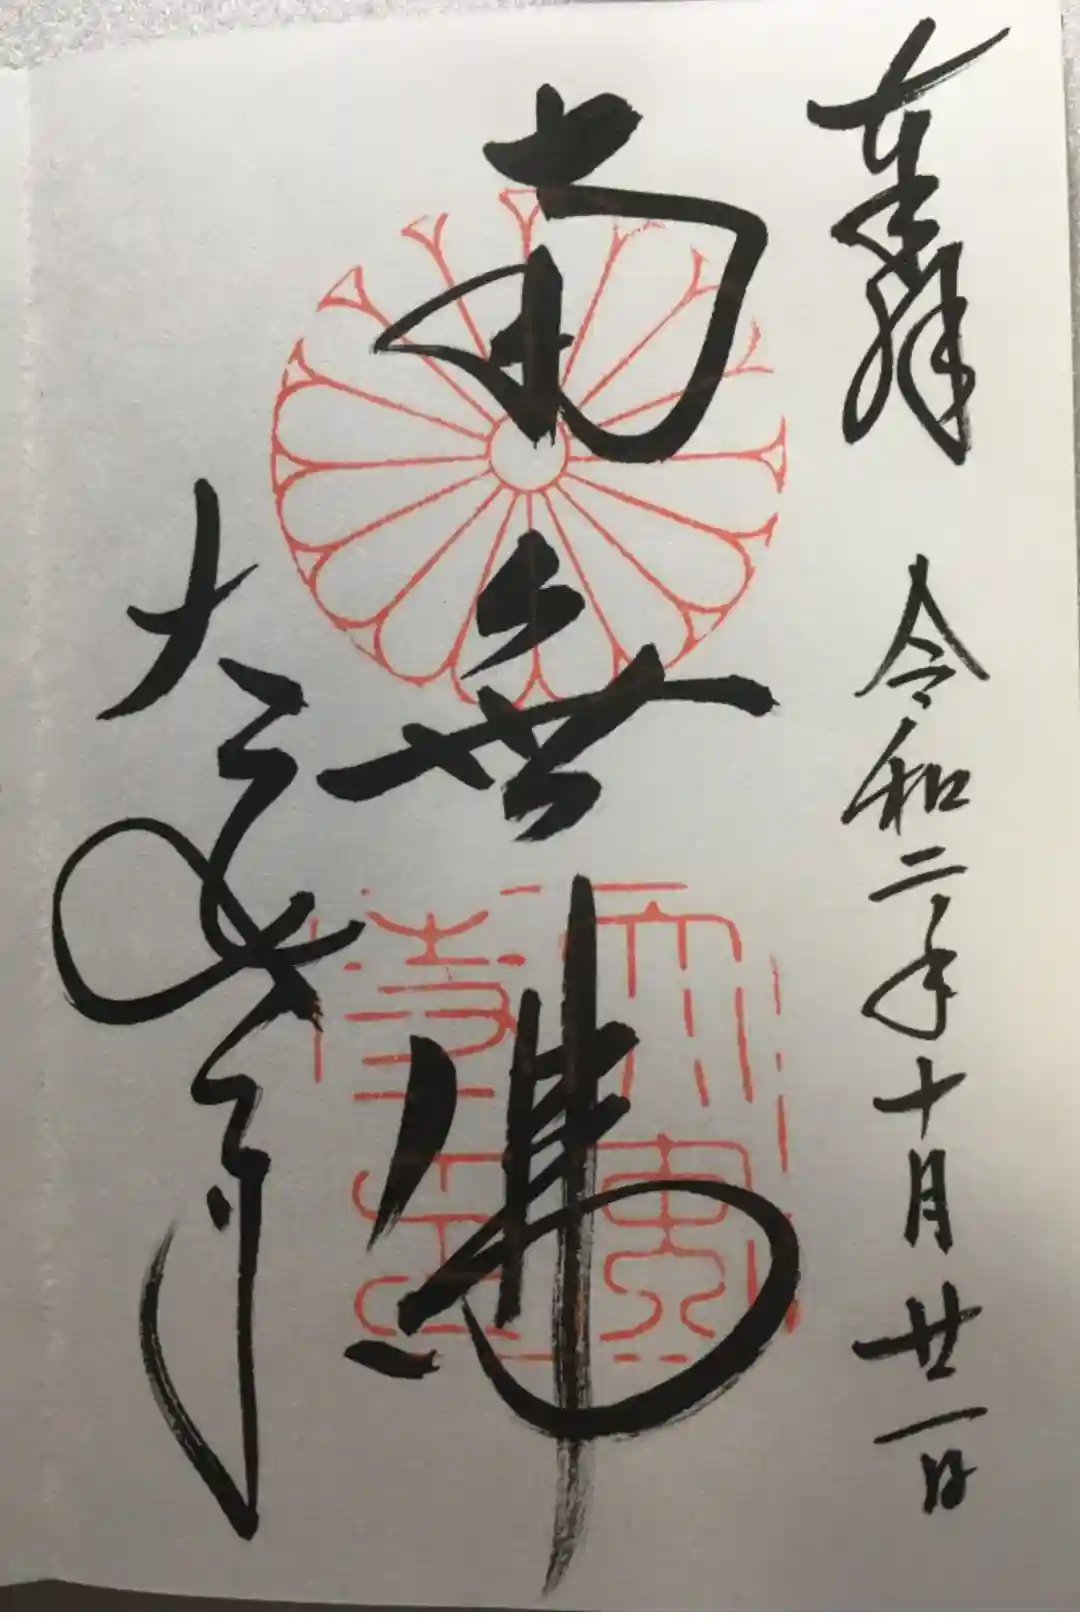 奉拝 令和二年十月廿一日
南無佛
大寺
寺印